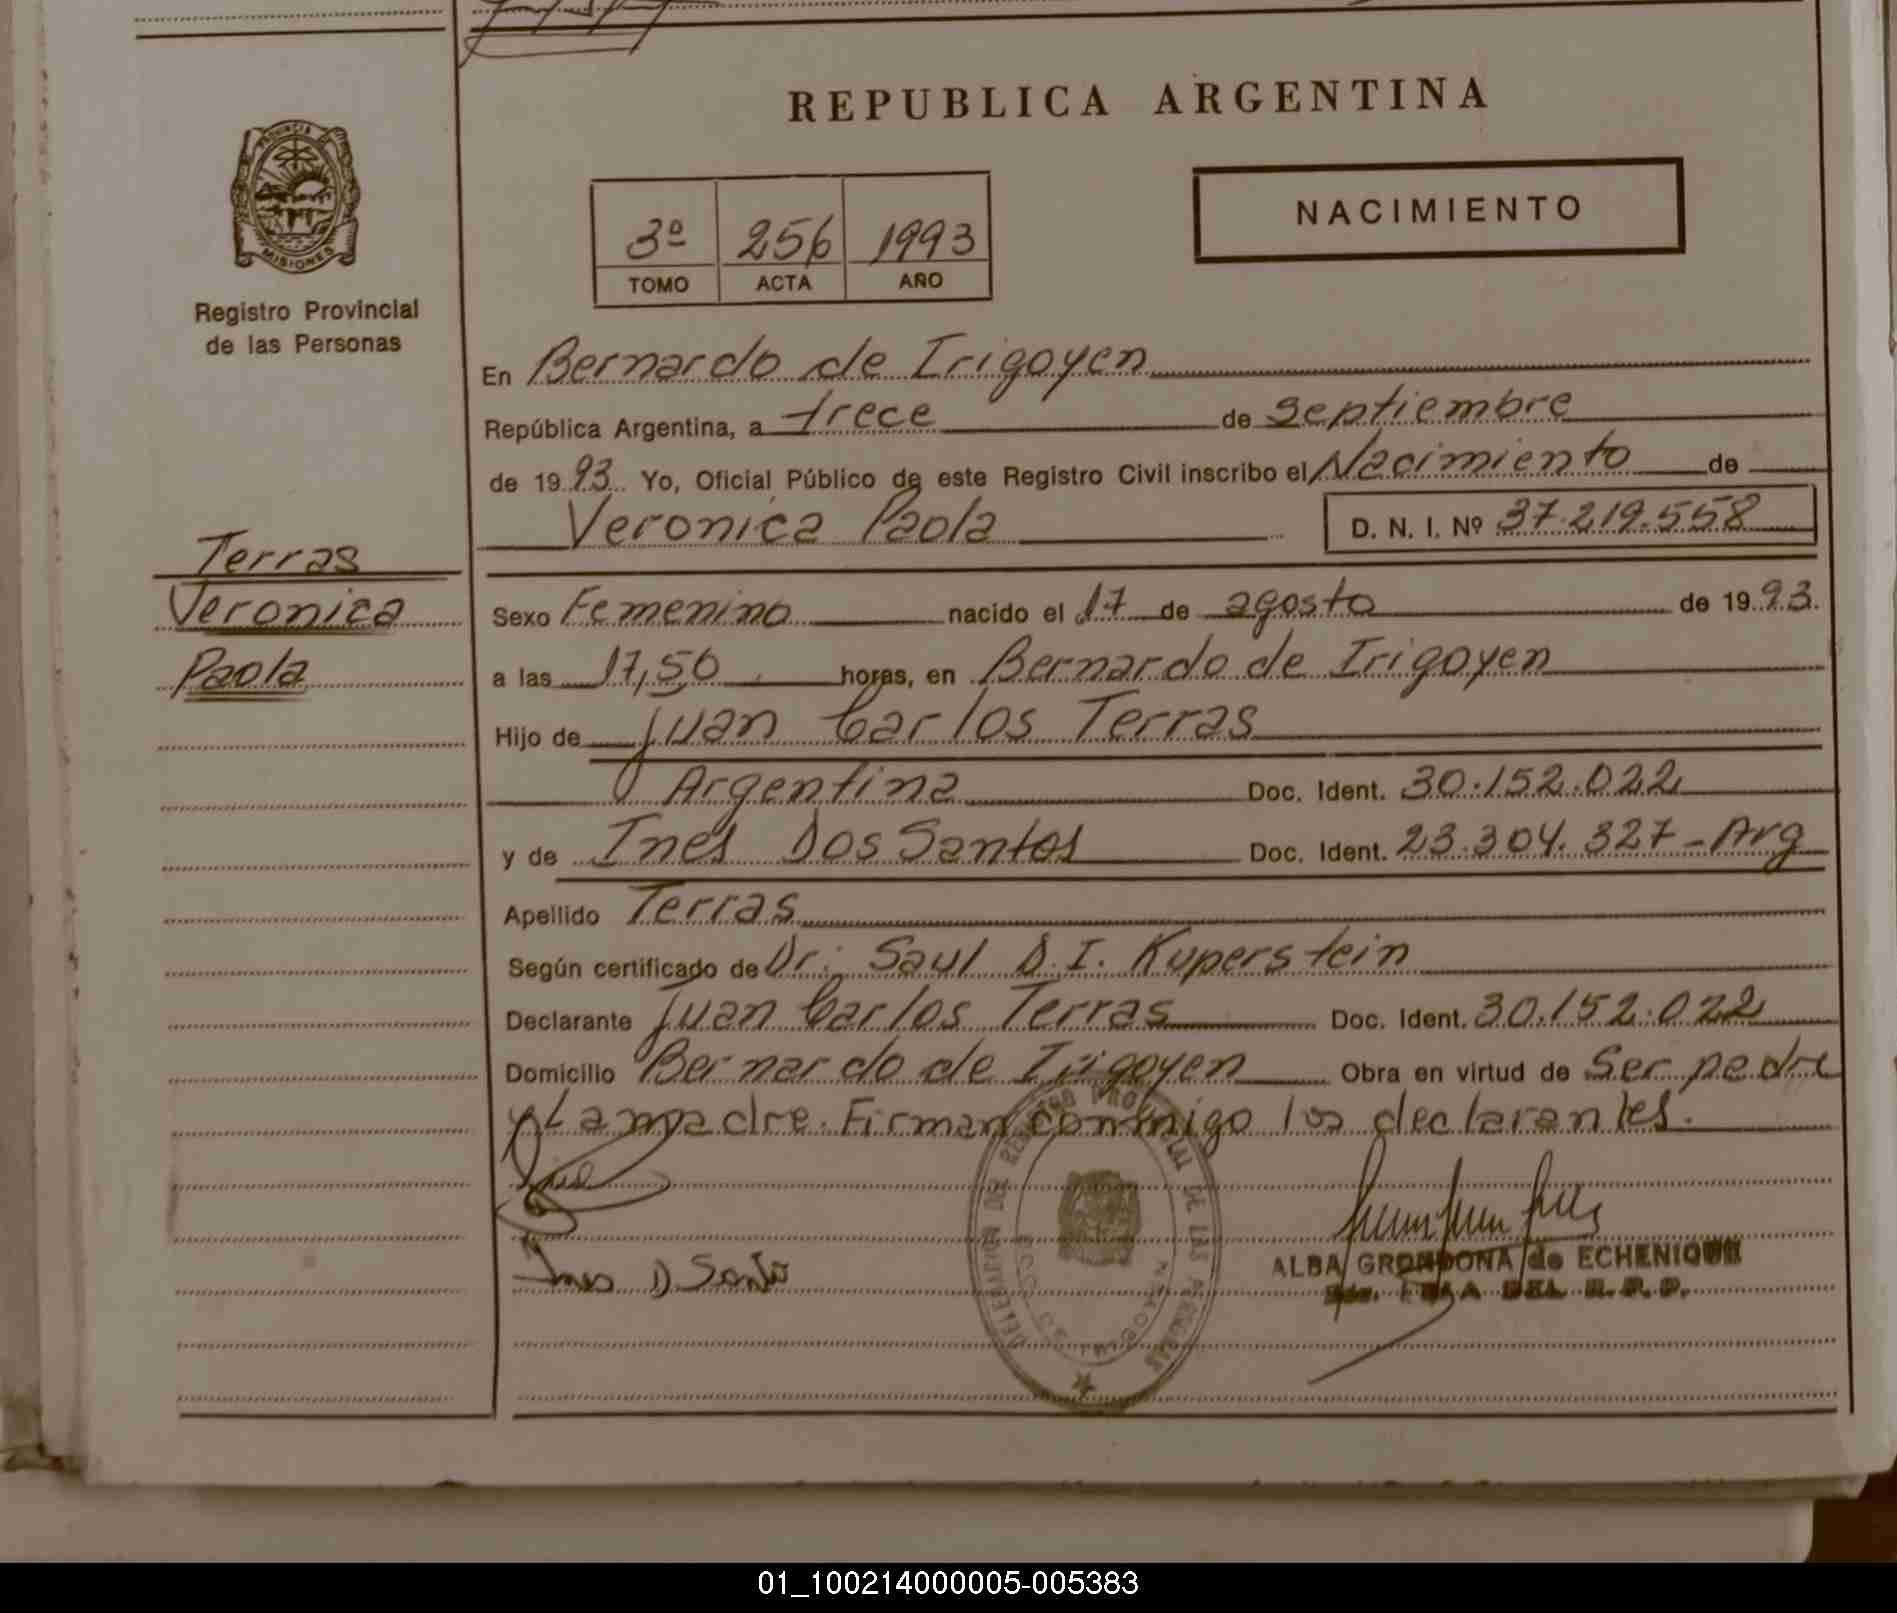 REPUBLICA ARGENTINA
PROVINCIA
MISIONES
Registro Provincial
de las Personas
3º 256 1993
TOMO ACTA AÑO
NACIMIENTO
En Bernardo de Irigoyen
República Argentina, a trece de septiembre
de 1993 Yo, Oficial Público de este Registro Civil inscribo el Nacimiento de
Veronica Paola D. N. I. Nº 37.219.558
Terras
Veronica
Paola
Sexo Femenino nacido el 17 de agosto de 1993.
a las 17,50 horas, en Bernardo de Irigoyen
Hijo de Juan Carlos Terras
Argentina Doc. Ident. 30.152.022
y de Ines Dos Santos Doc. Ident. 23.304.327-Arg
Apellido Terras
Según certificado de Dr. Saul D.I. Kuperstein
Declarante Juan Carlos Terras Doc. Ident. 30.152.022
Domicilio Bernardo de Irigoyen Obra en virtud de Ser padre
y La madre. Firman conmigo los declarantes.
Ines D Santo
DELEGACION DEL REGISTRO PROVINCIAL DE LAS PERSONAS
ALBA GRONDONA de ECHENIQUE
DEL R.P.P.
01_100214000005-005383